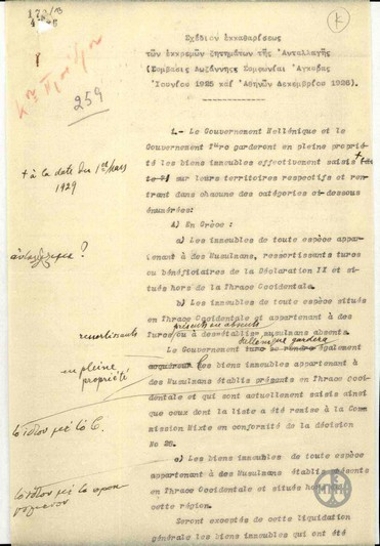 259
Κ
Σχέδιον ἐκκαθαρίσεως
τῶν ἐκκρεμῶν ζητημάτων τῆς Ἀνταλλαγῆς
(Σύμβασις Λωζάννης Συμφωνίαι Ἀγκύρας
Ἰουνίου 1925 καί Ἀθηνῶν Δεκεμβρίου 1926)
1.- Le Gouvernement Hellénique et le
Gouvernement Turc garderont en pleine proprié
té les biens immeubles effectivement saisis +
+ à la date du 1er Mars
1929
sur leurs territoires respectifs et ren-
trant dans chacune des catégories ci-dessous
énumérées:
A) En Grèce:
a) Les immeubles de toute espèce appar-
tenant à des Musulmans, ressortissants turcs
ou bénéficiaires de la Déclaration II et si-
tués hors de la Thrace Occidentale.
b) Les immeubles de toute espèce situés
en Thrace Occidentale et appartenant à des
présents ou absents
ressortissants
Turcs ou à des musulmans absents.
hellénique gardera
Le Gouvernement également
en pleine
propriété
les biens immeubles appartenant à
des Musulmans établis présents en Thrace Occi-
dentale et qui sont actuellement saisis ainsi
que ceux dont la liste a été remise à la Com-
mission Mixte en conformité de la décision
No 28.
τὸ ἴδιον μὲ τὸ C.
c) Les biens immeubles de toute espèce
appartenant à des Musulmans établis présents
en Thrace Occidentale et situés hors de
cette région.
τὸ ἴδιον μὲ τὸ
Seront exceptés de cette liquidation
générale les biens immeubles qui ont été